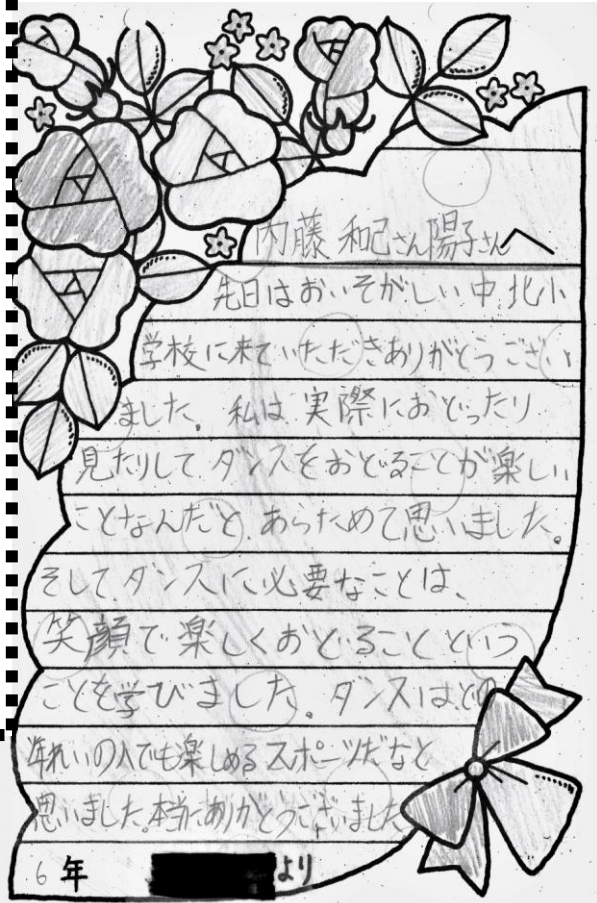 内藤 和己さん陽子さんへ
先日はおいそがしい中、北小
学校に来ていただきありがとうござい
ました。私は実際におどったり
見たりしてダンスをおどることが楽しい
ことなんだと、あらためて思いました。
そしてダンスに必要なことは、
笑顔で楽しくおどることという
ことを学びました。ダンスはどの
年れいの人でも楽しめるスポーツだなと
思いました。本当にありがとうございました
6年
より